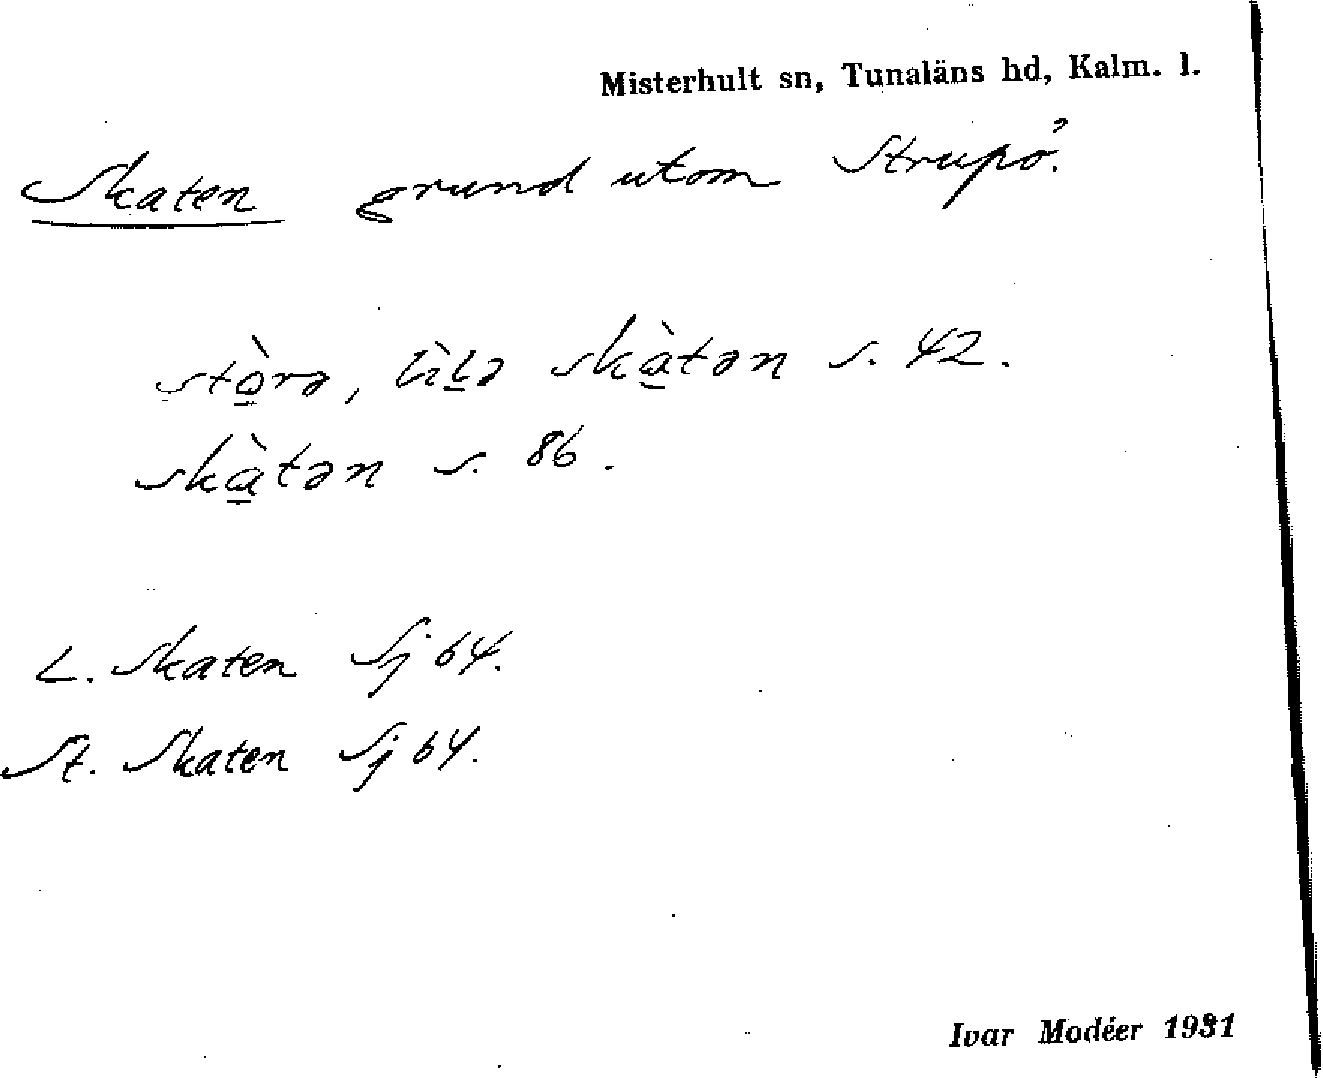 Misterhult sn, Tunaläns hd, Kalm. l.
Skaten grund utom Strupö.
stò̱rə, lìḻə skà̱tən s. 42.
skà̱tən s. 86.
L. Skaten Sj 64.
St. Skaten Sj 64.
Ivar Modéer 1931